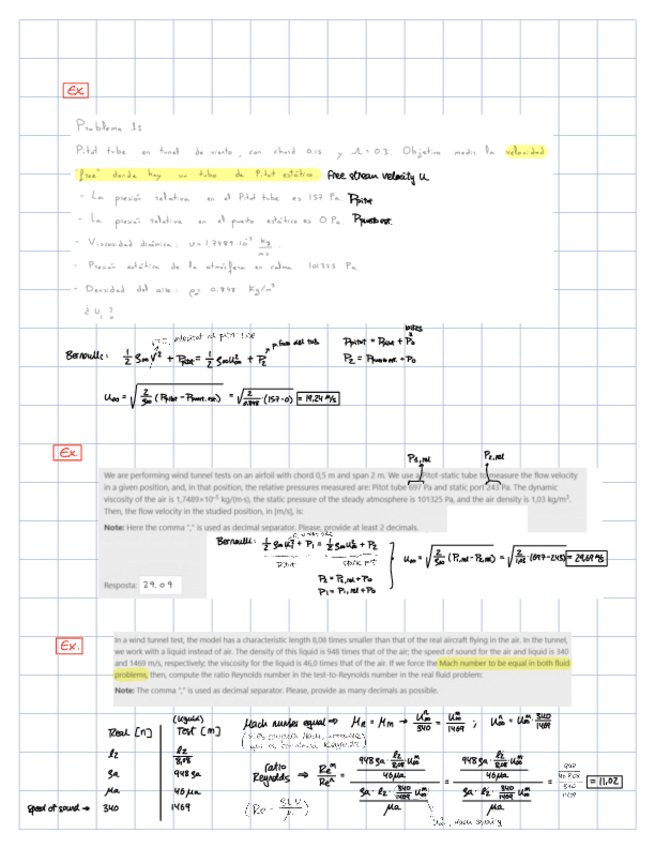 Ex
Problema 1s
Pitot tube en tunel de viento, con chord 0.15 y Λ = 0.3. Objetivo medir la velocidad
"free" donde hay un tubo de Pitot estático free stream velocity u
- La presión relativa en el Pitot tube es 157 Pa. Ppitot
- La presión relativa en el puerto estático es 0 Pa.
- Viscosidad dinámica: u = 1,7489·10⁻⁵ kg/ms.
- Presión estática de la atmósfera en calma 101325 Pa
- Densidad del aire: ρ = 0.848 kg/m³
¿ U, ?
Bernoulli: 1/2 ρ∞ V² + Ppitot = 1/2 ρ∞ u∞² + P2
u∞ = √(2/ρ∞ (Ppitot - Ppuert. est.)) = √(2/0.848 · (157-0)) = 19,24 m/s
Ex.
P1,rel P2,rel
We are performing wind tunnel tests on an airfoil with chord 0,5 m and span 2 m. We use a Pitot-static tube to measure the flow velocity
in a given position, and, in that position, the relative pressures measured are: Pitot tube 697 Pa and static port 243 Pa. The dynamic
viscosity of the air is 1,7489×10⁻⁵ kg/(m·s), the static pressure of the steady atmosphere is 101325 Pa, and the air density is 1,03 kg/m³.
Then, the flow velocity in the studied position, in [m/s], is:
Note: Here the comma "," is used as decimal separator. Please, provide at least 2 decimals.
Bernoulli: 1/2 ρ∞ u1² + P1 = 1/2 ρ∞ u∞² + P2
u∞ = √(2/ρ∞ (P1,rel - P2,rel)) = √(2/1,03 (697-243)) = 29,69 m/s
P2 = P2,rel + P0
P1 = P1,rel + P0
Resposta: 29.09
Ex.
In a wind tunnel test, the model has a characteristic length 8,08 times smaller than that of the real aircraft flying in the air. In the tunnel,
we work with a liquid instead of air. The density of this liquid is 948 times that of the air; the speed of sound for the air and liquid is 340
and 1469 m/s, respectively; the viscosity for the liquid is 46,0 times that of the air. If we force the Mach number to be equal in both fluid
problems, then, compute the ratio Reynolds number in the test-to-Reynolds number in the real fluid problem:
Note: The comma "," is used as decimal separator. Please, provide as many decimals as possible.
(liquid)
Real [n] Test [m]
l2 l2/8,08
ρa 948 ρa
μa 46 μa
speed of sound → 340 1469
Mach number equal ⇒ Mn = Mm → u∞ⁿ/340 = u∞ᵐ/1469 ; u∞ⁿ = u∞ᵐ · 340/1469
ratio Reynolds ⇒ Reᵐ/Reⁿ = (948 ρa · l2/8,08 · u∞ᵐ / 46 μa) / (ρa · l2 · 340/1469 u∞ᵐ / μa) = 11,02